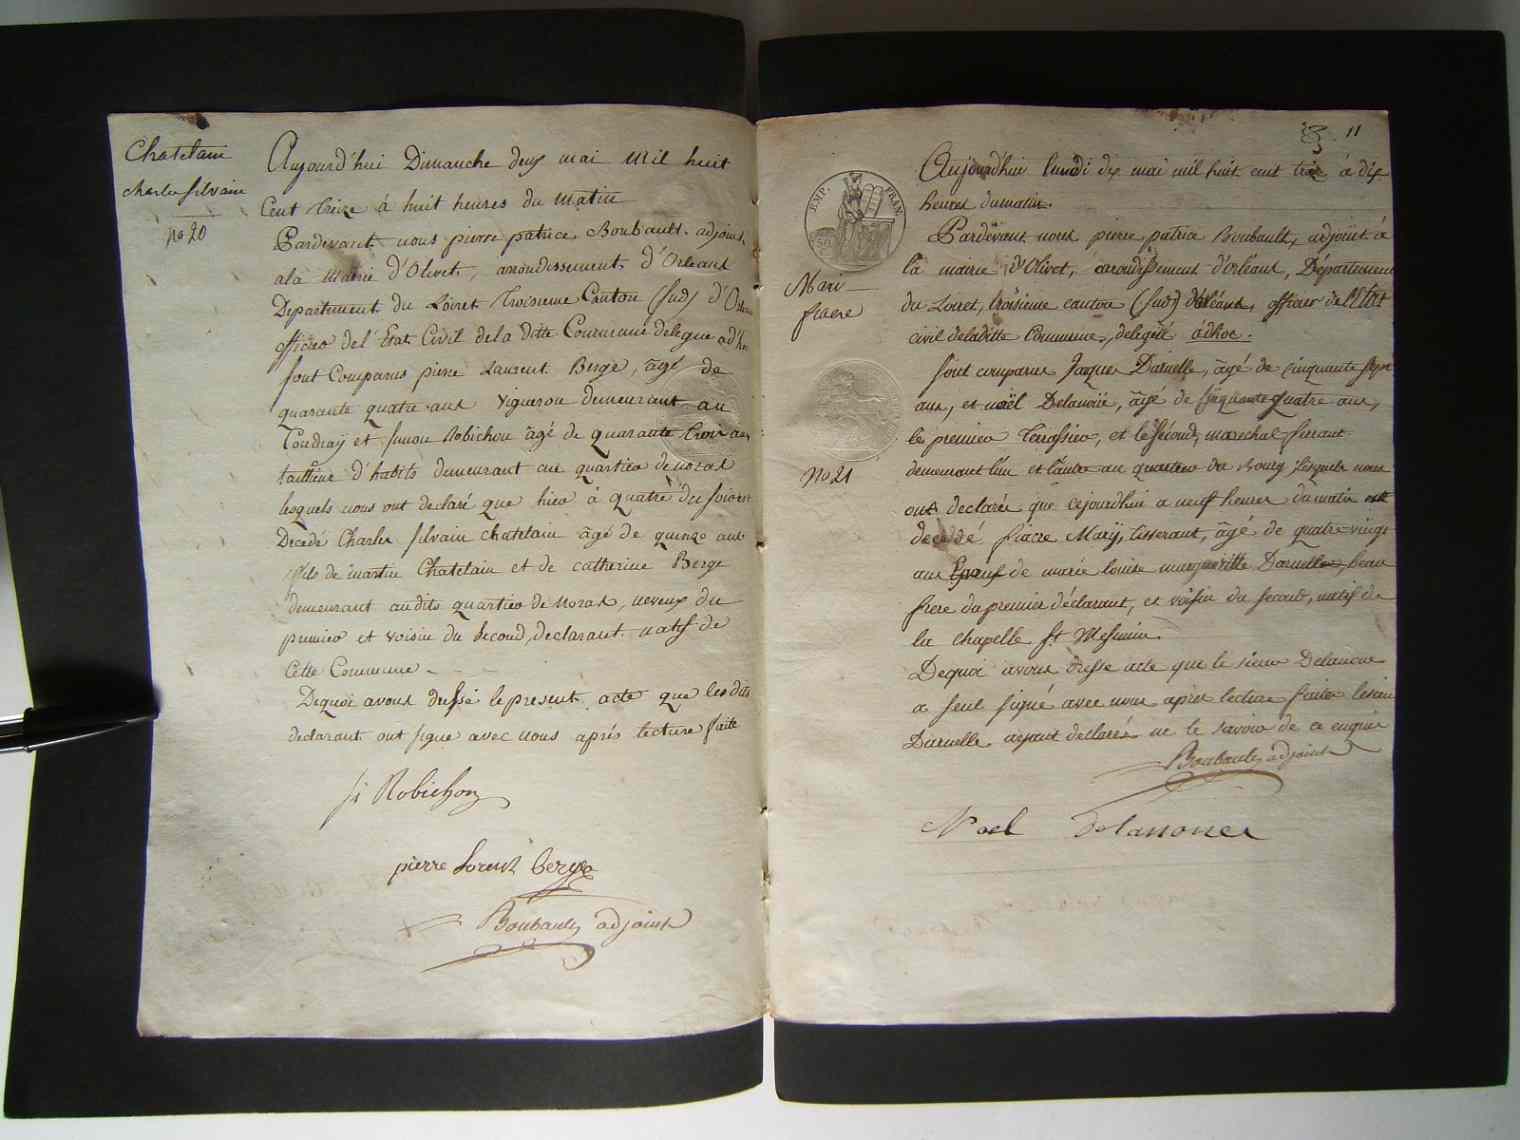 Chatelain
Charles Silvain
no 20
Aujourd'hui Dimanche deux mai mil huit
Cent treize à huit heures du matin
Pardevant nous pierre patrice Boubault adjoint
a la Mairie d'Olivet, arrondissement d'Orleans
Departement du Loiret troisieme Canton (Sud) d'Orleans
officier de l'Etat Civil de la ditte Commune delegué ad'hoc
sont Comparus pierre Laurent Berge, âgé de
quarante quatre ans vigneron demeurant au
Coudraÿ et simon Robichon âgé de quarante trois ans
tailleur d'habits demeurant au quartier de noras
lesquels nous ont declaré que hier à quatre du soir est
Decedé Charles Silvain chatelain âgé de quinze ans
fils de martin Chatelain et de catherine Berge
demeurant audits quartier de Noras, neveux du
premier et voisin du Second, declarant natif de
Cette Commune
Dequoi avons dressé le present acte que les dits
declarant ont signé avec nous après lecture faite
si Robichon
pierre Lorent berge
Boubault adjoint
11
EMP. FRAN.
50
Aujourd'hui lundi dix mai mil huit cent treize à dix
heures du matin.
Pardevant nous pierre patrice Boubault, adjoint à
la mairie d'Olivet, arrondissement d'orléans, Département
du Loiret, troisieme canton (Sud) d'orléans, officier de l'Etat
civil de laditte Commune, delegué adhoc.
Mari
fiacre
no 21
sont comparus Jaques Daruelle, âgé de cinquante sept
ans, et noël Delanoüe, âgé de cinquante quatre ans,
le premier Terrassier, et le second, marechal ferrant
demeurant l'un et l'autre au quartier du Bourg lesquels nous
ont declarés que cejourdhui a neuf heures du matin est
decedé fiacre Mary, tisserant, âgé de quatre vingt
ans Epoux de marie louise margueritte Daruelle, beau
frere du premier déclarant, et voisin du second, natif de
la chapelle St Mesmin.
Dequoi avons dressé acte que le sieur Delanoue
a seul signé avec nous après lecture faite le sieur
Daruelle ayant declarés ne le savoir de ce enquis
Boubault adjoint
Noel delanoue